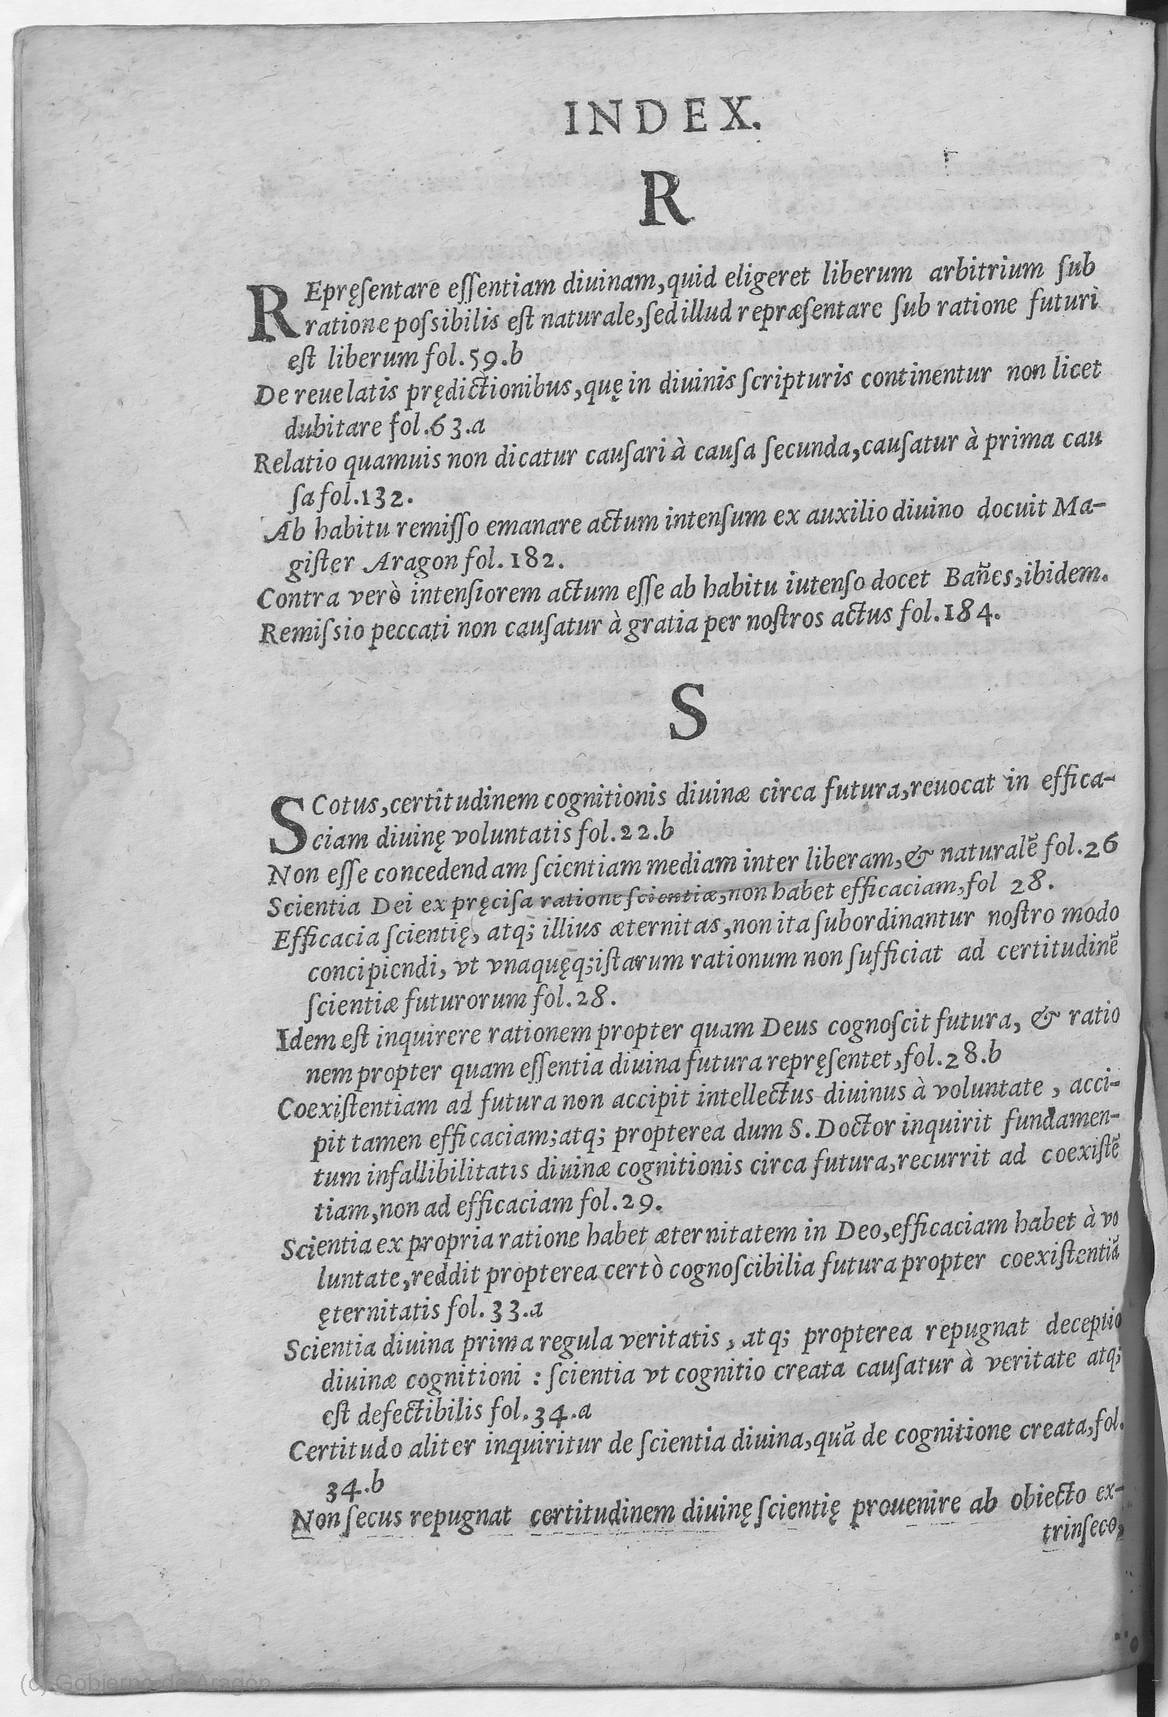 INDEX.
R
REpręſentare eſſentiam diuinam,quid eligeret liberum arbitrium ſub
ratione poſsibilis eſt naturale,ſed illud repræſentare ſub ratione futuri
eſt liberum fol.59.b
De reuelatis prędictionibus,quę in diuinis ſcripturis continentur non licet
dubitare fol.63.a
Relatio quamuis non dicatur cauſari à cauſa ſecunda,cauſatur à prima cau
ſa fol.132.
Ab habitu remiſſo emanare actum intenſum ex auxilio diuino docuit Ma-
giſter Aragon fol.182.
Contra verò intenſiorem actum eſſe ab habitu iutenſo docet Bañes,ibidem.
Remiſsio peccati non cauſatur à gratia per noſtros actus fol.184.
S
SCotus,certitudinem cognitionis diuinæ circa futura,reuocat in effica-
ciam diuinę voluntatis fol.22.b
Non eſſe concedendam ſcientiam mediam inter liberam,& naturalẽ fol.26
Scientia Dei ex pręciſa ratione ſcientiæ,non habet efficaciam,fol 28.
Efficacia ſcientię, atq; illius æternitas,non ita ſubordinantur noſtro modo
concipiendi, vt vnaquęq;iſtarum rationum non ſufficiat ad certitudinẽ
ſcientiæ futurorum fol.28.
Idem eſt inquirere rationem propter quam Deus cognoſcit futura, & ratio
nem propter quam eſſentia diuina futura repręſentet,fol.28.b
Coexiſtentiam ad futura non accipit intellectus diuinus à voluntate , acci-
pit tamen efficaciam;atq; propterea dum S.Doctor inquirit fundamen-
tum infallibilitatis diuinæ cognitionis circa futura,recurrit ad coexiſtẽ
tiam,non ad efficaciam fol.29.
Scientia ex propria ratione habet æternitatem in Deo,efficaciam habet à vo
luntate,reddit propterea certò cognoſcibilia futura propter coexiſtentiã
ęternitatis fol.33.a
Scientia diuina prima regula veritatis , atq; propterea repugnat deceptio
diuinæ cognitioni : ſcientia vt cognitio creata cauſatur à veritate atq;
eſt defectibilis fol.34.a
Certitudo aliter inquiritur de ſcientia diuina,quã de cognitione creata,fol.
34.b
Non ſecus repugnat certitudinem diuinę ſcientię prouenire ab obiecto ex-
trinſeco,
(c) Gobierno de Aragón